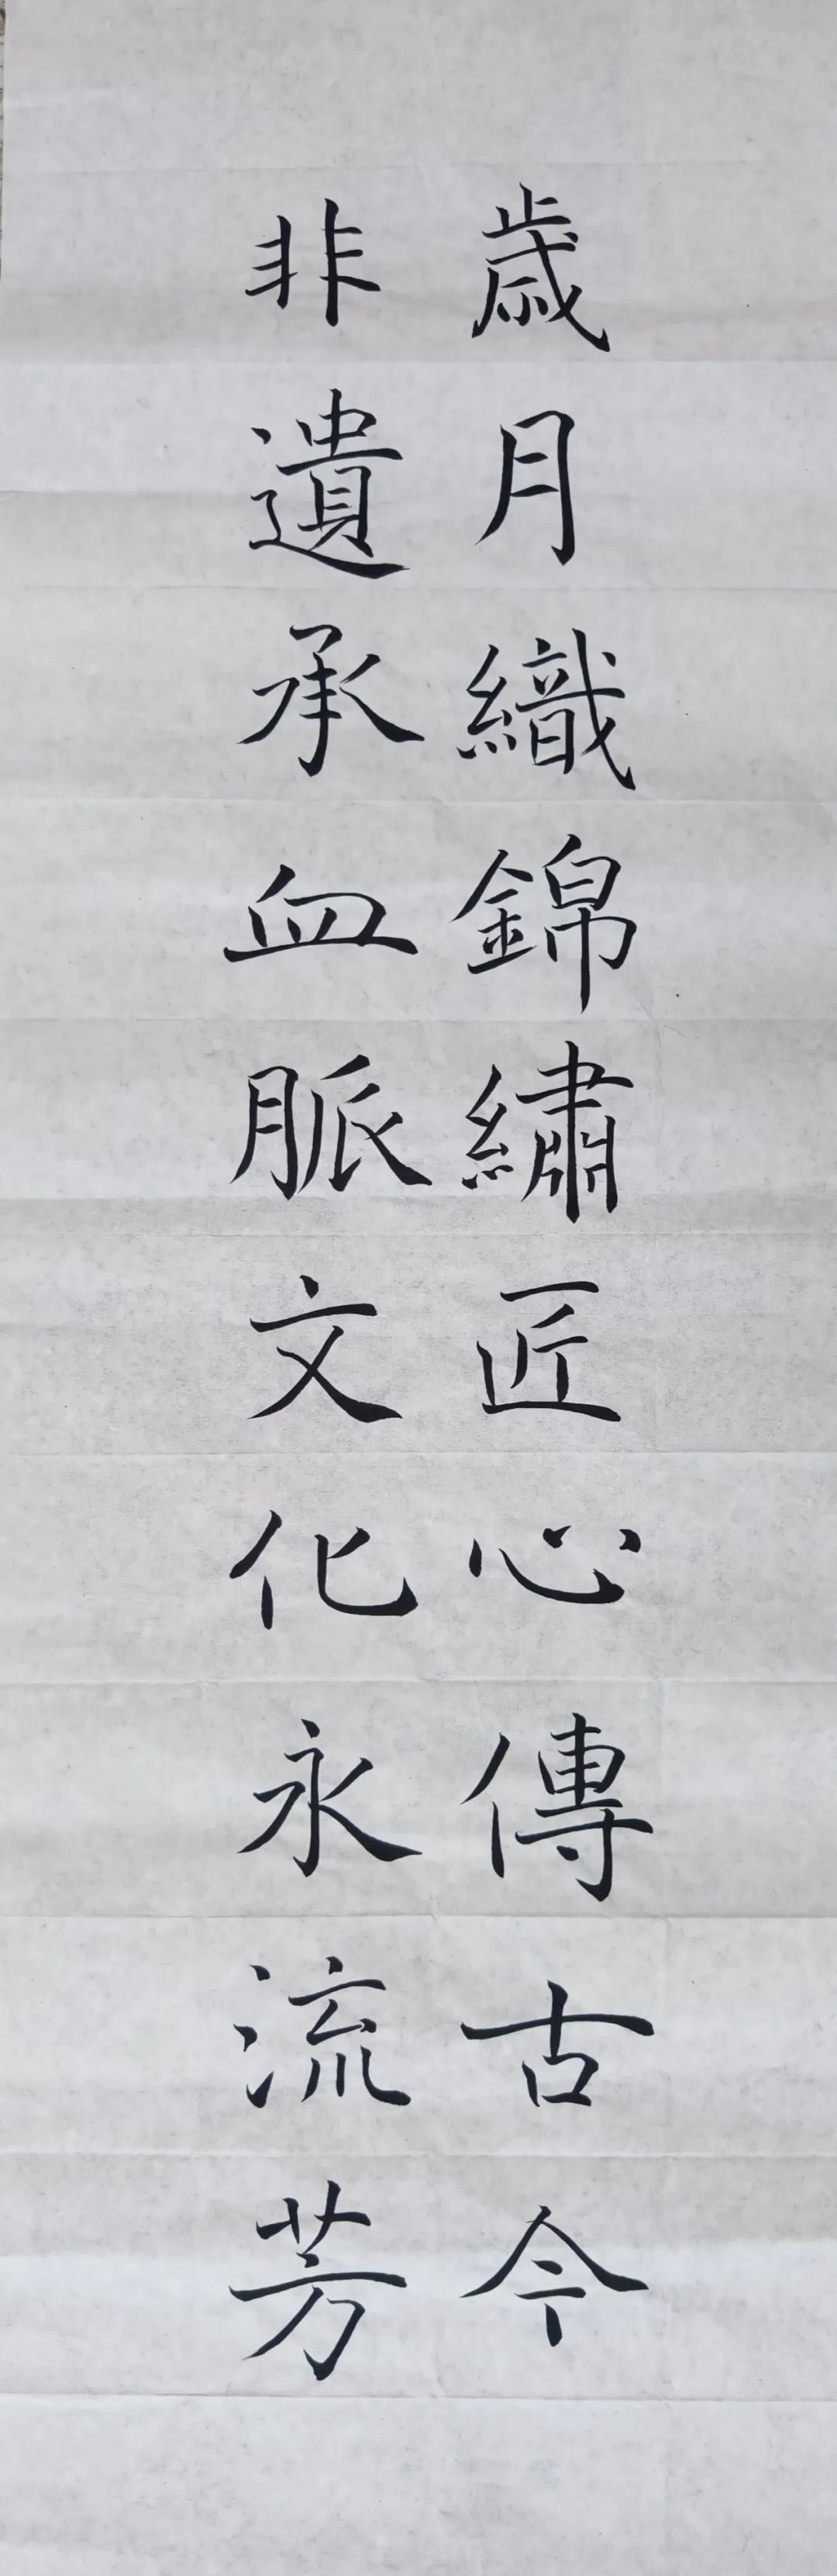 歳月織錦繡匠心傳古今
非遺承血脈文化永流芳